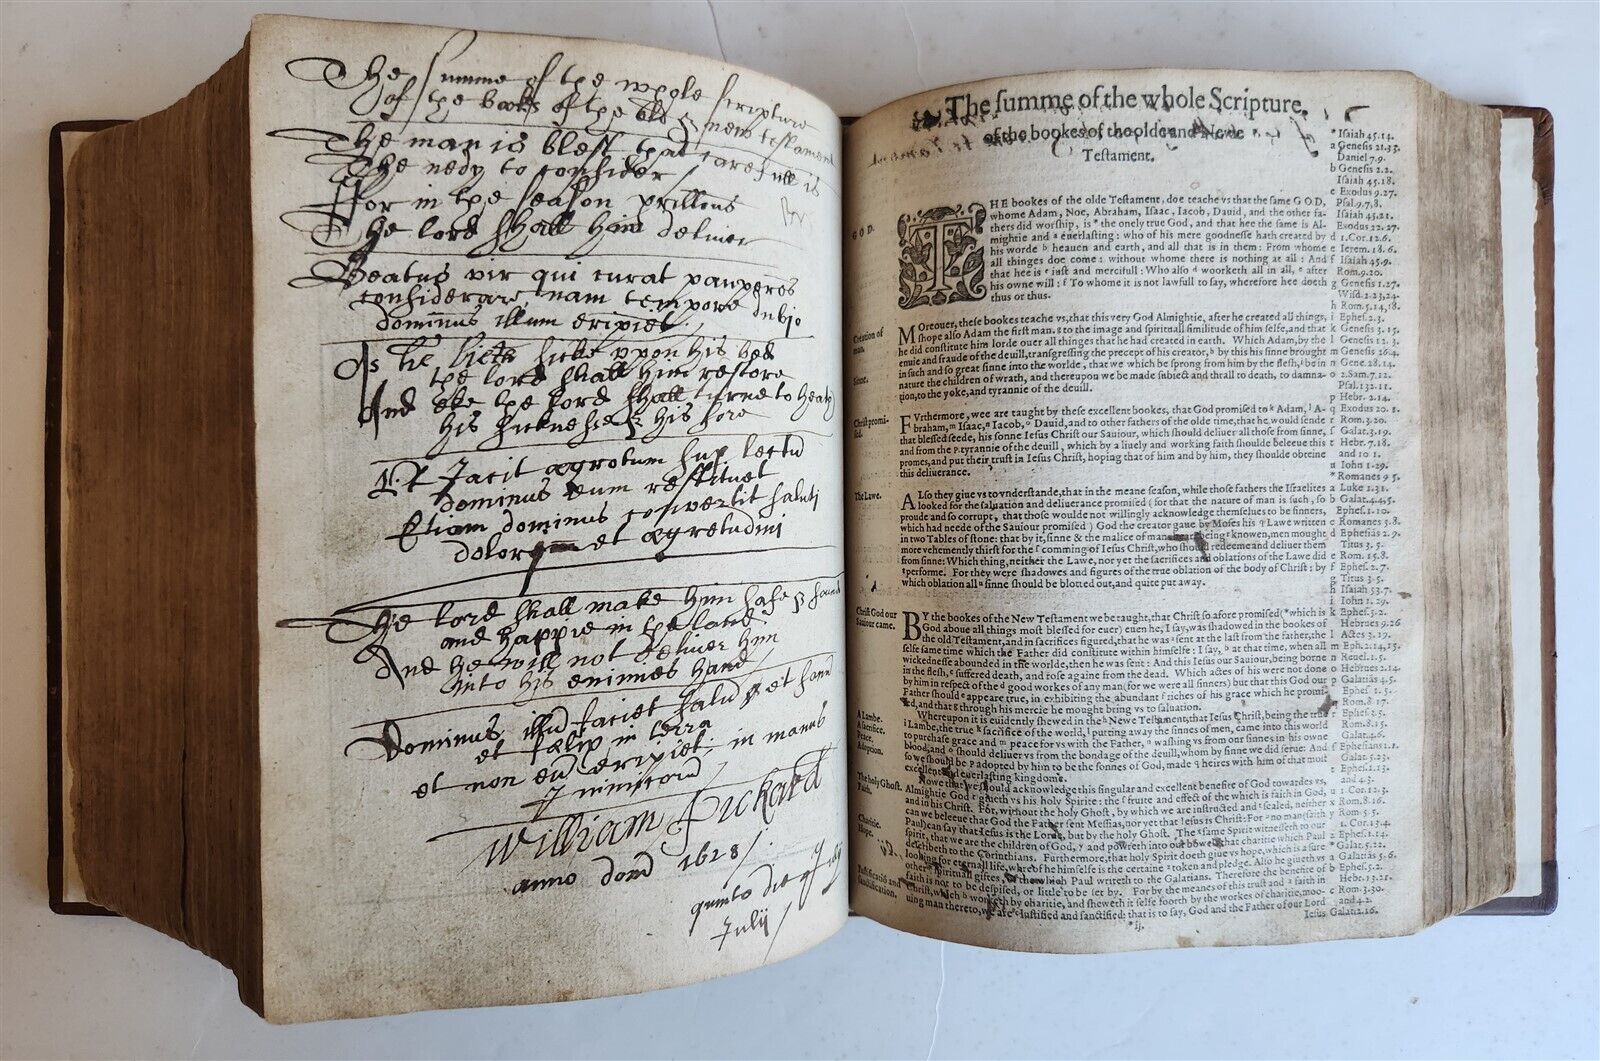 The summe of the whole scripture
of the books of the old & new testament
The man is blest that carefull is
The nedy to consider
ffor in the season perillous
The lord shall him deliver
Beatus vir qui curat pauperes
considerare, nam tempore dubio
dominus illum eripiet
As he lieth sicke vppon his bed
the lord shall him restore
And eke the lord shall turne to health
his sicknesse & his sore
jacit ægrotum sup lectu
dominus eum restituet
Etiam dominus convertit saluti
et ægretudini
The lord shall make him safe & sound
and happie in the land
And he will not deliver him
into his enimies hand
Dominus illud faciet salud et
et fælix in terra
et non eripiet in manus
William Pickard
anno domi 1628
quinto die
Julij
The summe of the whole Scripture,
of the bookes of the olde and Newe
Testament.
GOD.
THE bookes of the olde Testament, doe teache vs that the same GOD,
whome Adam, Noe, Abraham, Isaac, Iacob, Dauid, and the other fa-
thers did worship, is the onely true God, and that hee the same is Al-
mightie and euerlasting: who of his mere goodnesse hath created by
his worde heauen and earth, and all that is in them: From whome
all things doe come: without whome there is nothing at all: And
that hee is iust and mercifull: Who also woorketh all in all, after
his owne will: To whome it is not lawfull to say, wherefore hee doeth
thus or thus.
Creation of
man.
Sinne.
Moreouer, these bookes teache vs, that this very God Almightie, after he created all things,
shope also Adam the first man, to the image and spirituall similitude of him selfe, and that
he did constitute him lorde ouer all things that he had created in earth. Which Adam, by the
enuie and fraude of the deuill, transgressing the precept of his creator, by this his sinne brought
in such and so great sinne into the worlde, that we which be sprong from him by the flesh, be in
nature the children of wrath, and thereupon we be made subiect and thrall to death, to damna-
tion, to the yoke, and tyrannie of the deuill.
Christ promi-
sed.
FVrthermore, wee are taught by these excellent bookes, that God promised to Adam, A-
braham, Isaac, Iacob, Dauid, and to other fathers of the olde time, that he would sende
that blessed seede, his sonne Iesus Christ our Sauiour, which should deliuer all those from sinne,
and from the tyrannie of the deuill, which by a liuely and working faith shoulde beleeue this
promes, and put their trust in Iesus Christ, hoping that of him and by him, they should obteine
this deliuerance.
The Lawe.
ALso they giue vs to vnderstande, that in the meane season, while those fathers the Israelites
looked for the saluation and deliuerance promised (for that the nature of man is such, so
proude and so corrupt, that those woulde not willingly acknowledge themselues to be sinners,
which had neede of the Sauiour promised) God the creator gaue by Moses his Lawe written
in two Tables of stone: that by it, sinne & the malice of mans heart being knowen, men mought
more vehemently thirst for the comming of Iesus Christ, who should redeeme and deliuer them
from sinne: Which thing, neither the Lawe, nor yet the sacrifices and oblations of the Lawe did
performe. For they were shadowes and figures of the true oblation of the body of Christ: by
which oblation all sinne should be blotted out, and quite put away.
Christ God our
Sauiour came.
BY the bookes of the New Testament we be taught, that Christ so afore promised (which is
God aboue all things most blessed for euer) euen he, I say, was shadowed in the bookes of
the old Testament, and in sacrifices figured, that he was sent at the last from the father, the
selfe same time which the Father did constitute within himselfe: I say, at that time, when all
wickednesse abounded in the worlde, then he was sent: And this Iesus our Sauiour, being borne
in the flesh, suffered death, and rose againe from the dead. Which actes of his were not done
by him in respect of the good workes of any man (for we were all sinners) but that this God our
Father should appeare true, in exhibiting the abundant riches of his grace which he promi-
sed, and that through his mercie he mought bring vs to saluation.
A Lambe.
A sacrifice.
Peace.
Adoption.
Whereupon it is euidently shewed in the Newe Testament, that Iesus Christ, being the true
Lambe, the true sacrifice of the world, putting away the sinnes of men, came into this world
to purchase grace and peace for vs with the Father, washing vs from our sinnes in his owne
blood, and should deliuer vs from the bondage of the deuill, whom by sinne we did serue: And
so we should be adopted by him to be the sonnes of God, made heires with him of that most
excellent and euerlasting kingdome.
The holy Ghost.
Faith.
Charitie.
Hope.
Iustification and
sanctification.
Nowe that we should acknowledge this singular and excellent benefite of God towardes vs,
Almightie God giueth vs his holy Spirite: the fruite and effect of which is faith in God,
and in his Christ. For, without the holy Ghost, by which we are instructed and sealed, neither
can we beleeue that God the Father sent Messias, nor yet that Iesus is Christ: For no man (saith
Paul) can say that Iesus is the Lorde, but by the holy Ghost. The same Spirit witnesseth to our
spirit, that we are the children of God, and powreth into our bowels that charitie which Paul
describeth to the Corinthians. Furthermore, that holy Spirit doeth giue vs hope, which is a sure
looking for eternall life, whereof he himselfe is the certaine token and pledge. Also he giueth vs
other spirituall giftes, of the which Paul writeth to the Galatians. Therefore the benefite of
faith is not to be despised, or little to be set by. For by the meanes of this trust and faith in
Christ, which worketh by charitie, and sheweth it selfe foorth by the workes of charitie, moo-
uing man thereto, we are iustified and sanctified: that is to say, God and the Father of our Lord
Iesus
*ij.
* Isaiah 45.14.
a Genesis 21.33.
Daniel 7.9.
b Genesis 2.2.
Isaiah 45.18.
c Exodus 9.27.
Psal.9.7,8.
Isaiah 45.21.
Exodus 22.27.
d 1.Cor.12.6.
e Ierem.18.6.
f Isaiah 45.9.
Rom.9.20.
g Genesis 1.27.
Wisd.2.23,24.
h Rom.5.14,18.
i Ephes.2.3.
k Genesis 3.15.
l Genesis 12.3.
m Genesis 26.4.
n Gene.28.14.
o 2.Sam.7.12.
Psal.132.11.
p Hebr.2.14.
q Exodus 20.1.
r Rom.3.20.
s Galat.3.19.
t Hebr.7.18.
and 10.1.
u Iohn 1.29.
* Romanes 9.5.
a Luke 1.31.
b Galat.4.4,5.
Ephes.1.10.
c Romanes 5.8.
d Ephesians 2.9.
Titus 3.5.
e Rom.15.8.
f Ephes.2.7.
g Titus 3.5.
h Isaiah 53.7.
i Iohn 1.29.
k Ephes.5.2.
Hebrues 9.26
l Actes 3.19.
m Eph.2.14,15.
n Reuel.1.5.
o Hebrues 2.14.
p Galatians 4.5.
Ephes.1.5.
Rom.8.17.